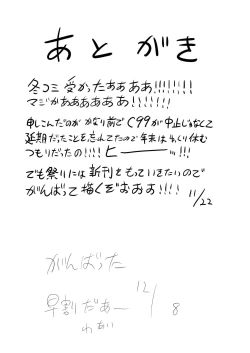 あとがき
冬コミ受かったあああ!!!!!!!
マジかああああああ!!!!!!!
申しこんだのがかなり前でC99が中止じゃなくて
延期だったことを忘れてたので年末はゆっくり休む
つもりだったの!!!! ヒーーー!!!
でも祭りには新刊をもっていきたいので
がんばって描くぞおおお!!!!
11/22
がんばった
12/8
早割だあー
わぁい